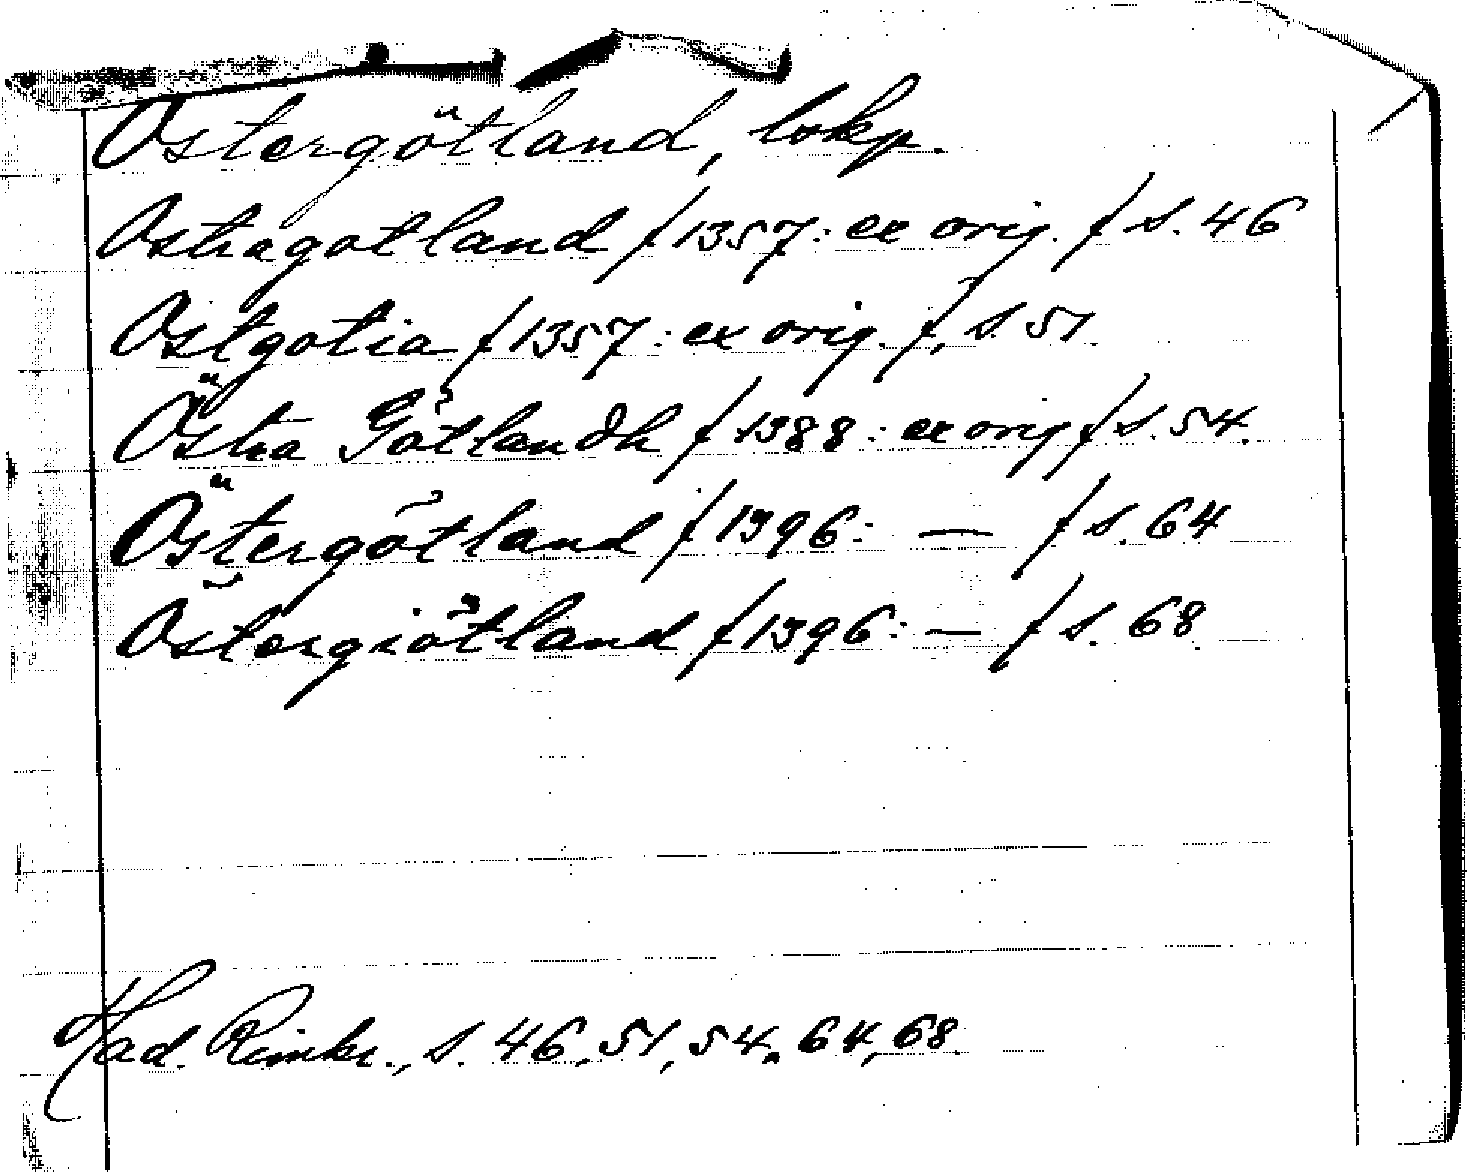 Östergötland, lokp.
Ostragotland f 1357: ex orig. f s. 46
Ostgotia f 1357: ex orig. f, s. 51.
Östra Götlandh f 1388: ex orig f s. 54.
Östergötland f 1396: — f s. 64
Östergiötland f 1396: — f s. 68.
Had. Rimkr., s. 46, 51, 54, 64, 68.